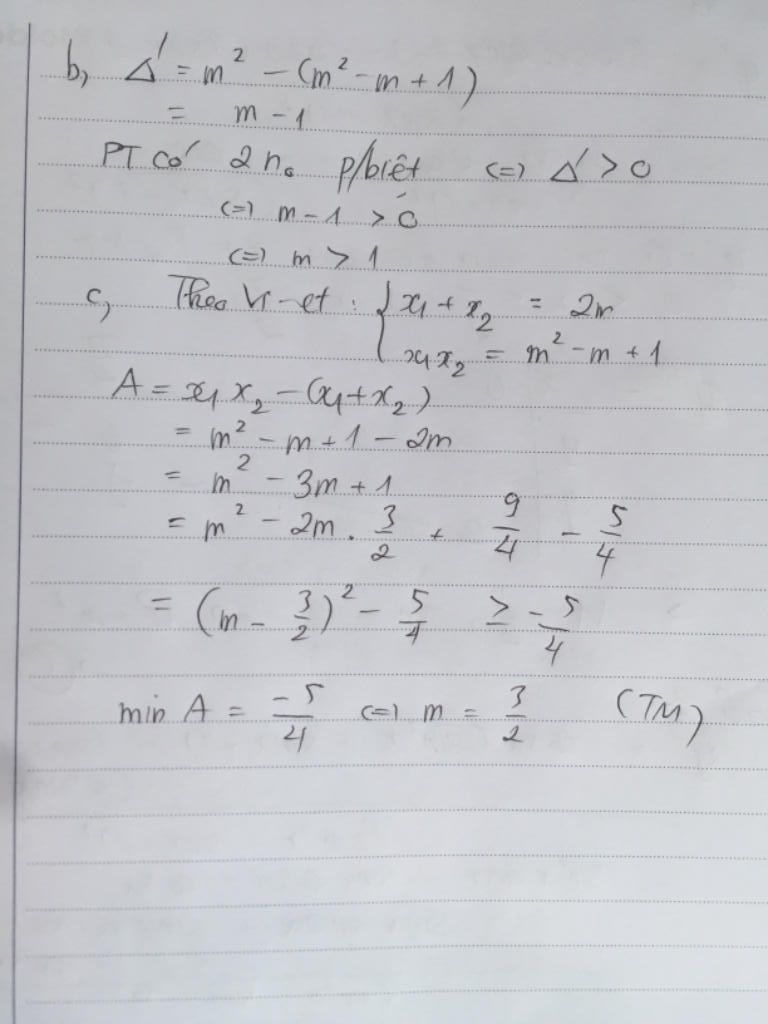 b, Δ' = m² - (m² - m + 1)
= m - 1
PT có 2 n₀ p/biệt <=> Δ' > 0
<=> m - 1 > 0
<=> m > 1
c, Theo Vi-et : { x₁ + x₂ = 2m
x₁x₂ = m² - m + 1
A = x₁x₂ - (x₁+x₂)
= m² - m + 1 - 2m
= m² - 3m + 1
= m² - 2m . 3/2 + 9/4 - 5/4
= (m - 3/2)² - 5/4 ≥ -5/4
min A = -5/4 <=> m = 3/2 (TM)